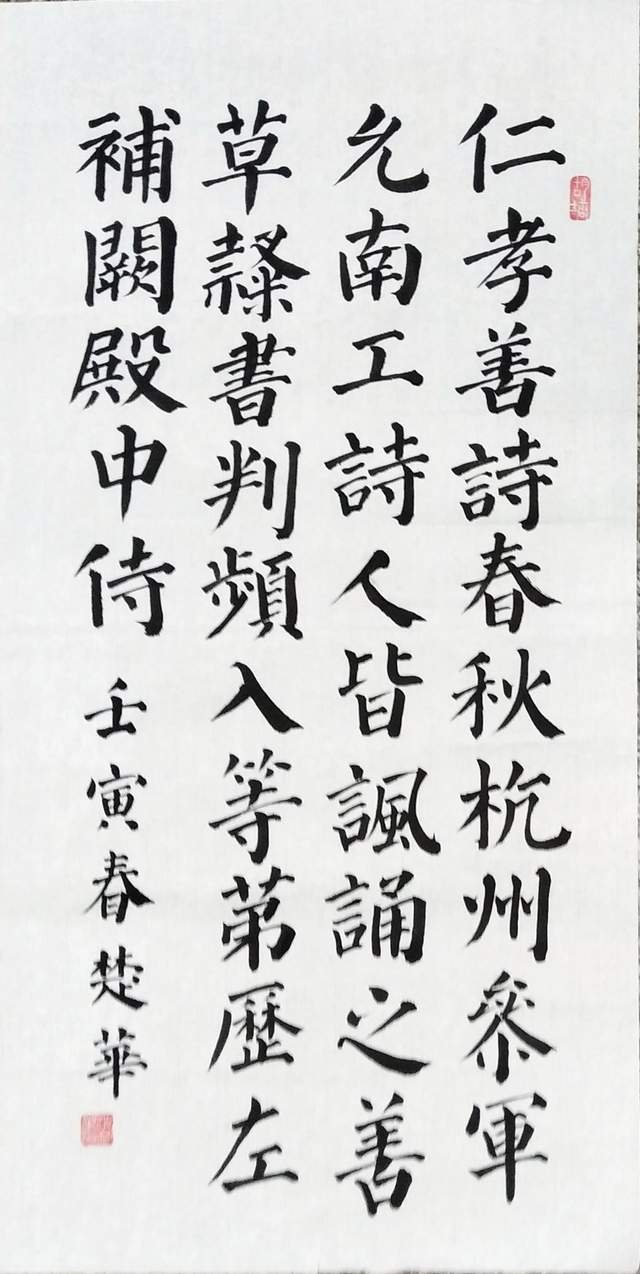 仁孝善詩春秋杭州參軍
允南工詩人皆諷誦之善
草隸書判頻入等第歷左
補闕殿中侍
壬寅春楚華